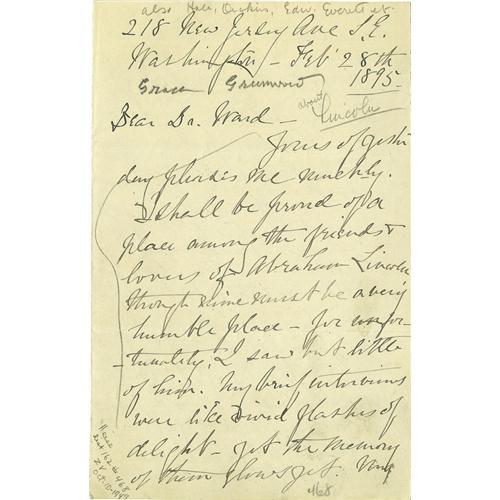 also Hale, Dickens, Edw. Everett
218 New Jersey Ave S.E.
Washington - Feb 28th
1895
Grace Greenwood
about
Lincoln
Dear Dr. Ward -
Yours of yester
day pleases me much.
I shall be proud of a
place among the friends &
lovers of Abraham Lincoln
though mine must be a very
humble place - for unfor-
tunately, I saw but little
of him. My brief interviews
were like vivid flashes of
delight - yet the memory
of them glows yet.
468
Oct. 10-1949